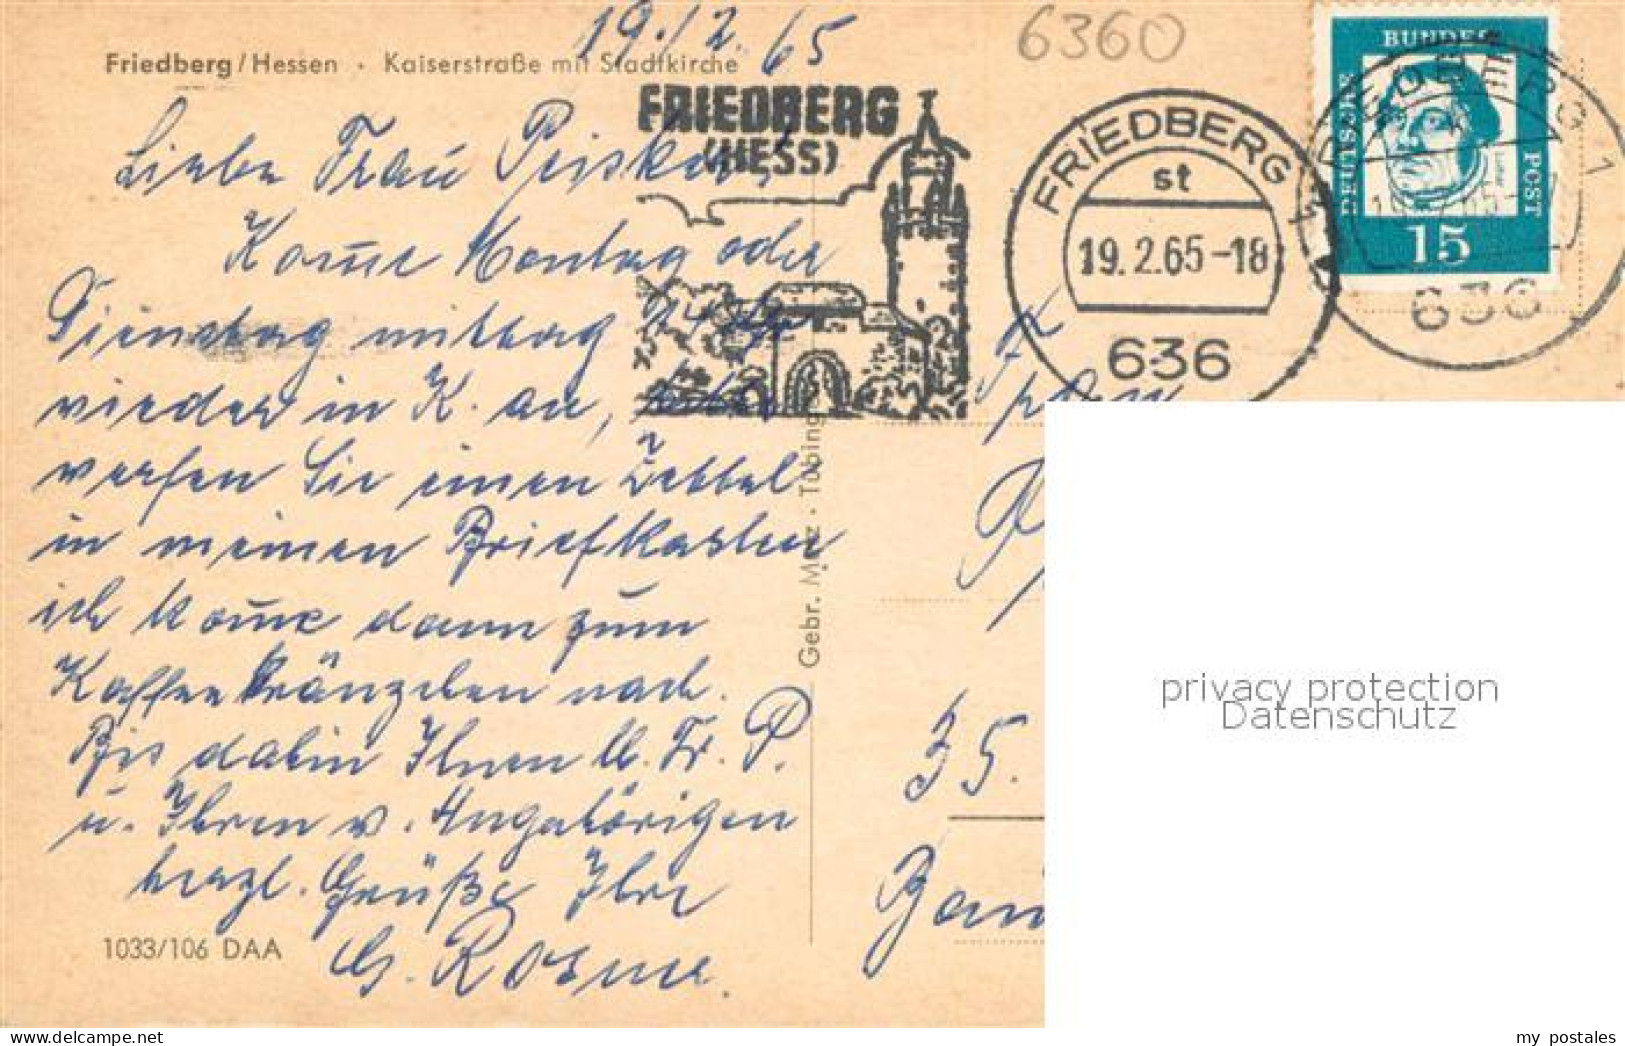 19./2. 65
6360
Friedberg/Hessen · Kaiserstraße mit Stadtkirche
FRIEDBERG
(HESS)
FRIEDBERG 1
st
19.2.65-18
636
DEUTSCHE BUNDES POST
15
636
Liebe Frau Peisker!
Kom̄e Montag oder
Dienstag mittag
wieder in K. an, bitte
werfen Sie einen Zettel
in meinen Briefkasten
ich kom̄e dann zum
Kaffeekränzchen nach.
Bis dahin Ihnen lb. Fr. P.
u. Ihren w. Angehörigen
herzl. Grüße Ihre
G. Rosme.
Gebr. Metz · Tübingen
35.
1033/106 DAA
privacy protection
Datenschutz
my postales